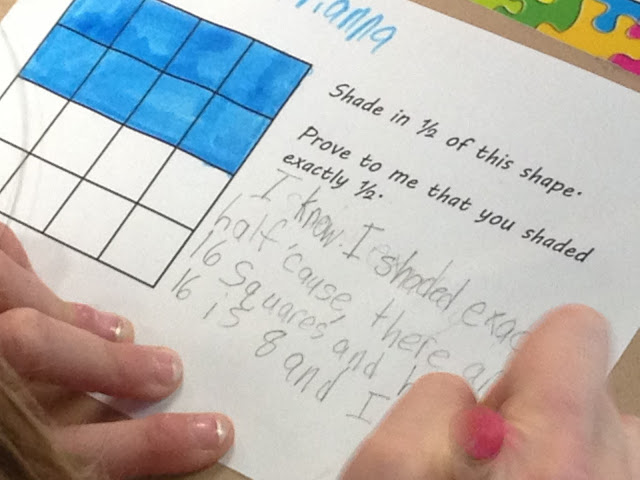 Shade in ½ of this shape.
Prove to me that you shaded
exactly ½.
I know I shaded
half 'cause, there
16 Squares and
16 is 8 and I